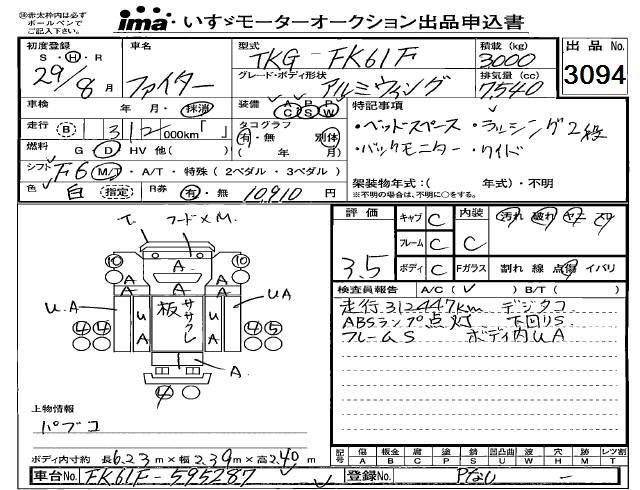 ㊟赤太枠内は必ず
ボールペンで
ご記入下さい。
ima・いすゞモーターオークション出品申込書
初度登録 車名 型式 積載 (kg) 出品 No.
S・H・R 29/8月 ファイター TKG-FK61F 3000
グレード・ボディ形状 アルミウィング 排気量 (cc) 7540 3094
車検 年 月・抹消 装備 AC PS PW 特記事項
走行 B 312 000km「 」 タコグラフ 有・無 別体 ・ベッドスペース ・ラッシング2段
燃料 G D HV 他( ) ( 年 月) ・バックモニター ・ワイド
シフト F6 M/T・A/T・特殊(2ペダル・3ペダル)
色 白 指定 R券 有・無 10,910円 架装物年式:( 年式)・不明
※不明の場合は、年式に○をする。
評価 キャブ C 内装 汚れ 破れ ヤニ スリ
フレーム C C
3.5 ボディ C Fガラス 割れ 線 点傷 イバリ
検査員報告 A/C( ✓ ) B/T( )
走行312447km デジタコ
ABSランプ点灯 下回りS
フレームS ボディ内UA
T. フードメM.
10 A 10
A A A
U.A UA 板ササクレ UA UA
4 4 4 5
A.
4
上物情報
パブコ
ボディ内寸約 長6.23m×幅2.39m×高2.40m
記号 傷A 板金B 腐C 塗P 錆S 凹凸曲U 波W 穴H 跡M レツ割T
車台No. FK61F-595287 登録No. Pなし -